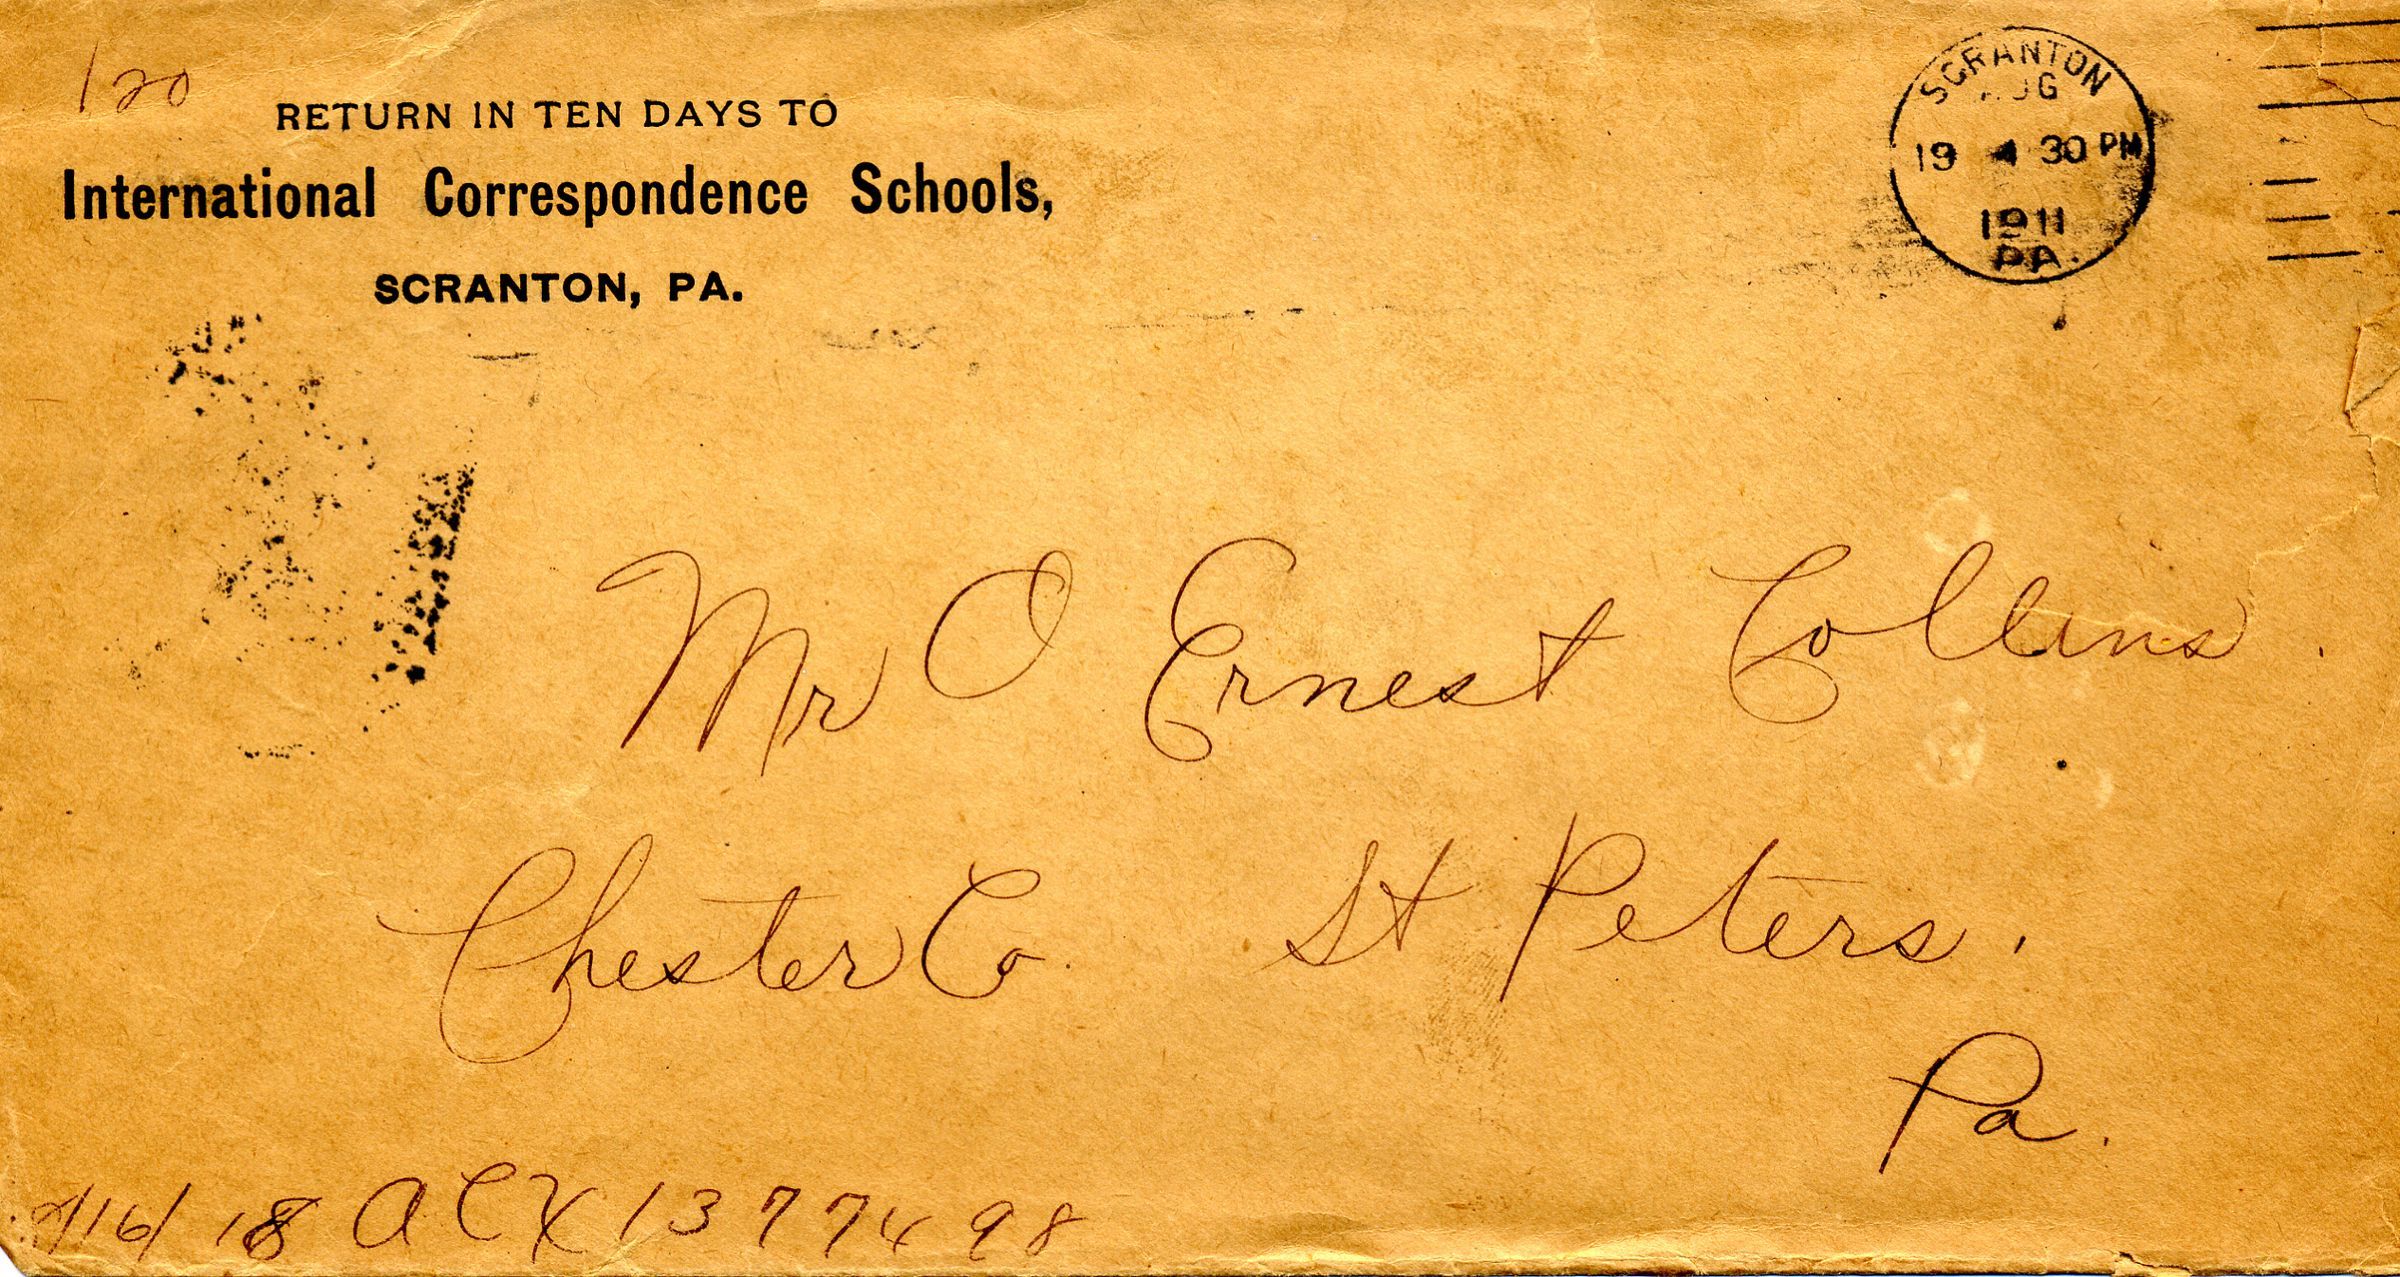 120
RETURN IN TEN DAYS TO
International Correspondence Schools,
SCRANTON, PA.
SCRANTON
AUG
19 4 30 PM
1911
PA.
Mr O Ernest Collins.
Chester Co. St Peters.
Pa.
18 A C X 1377498